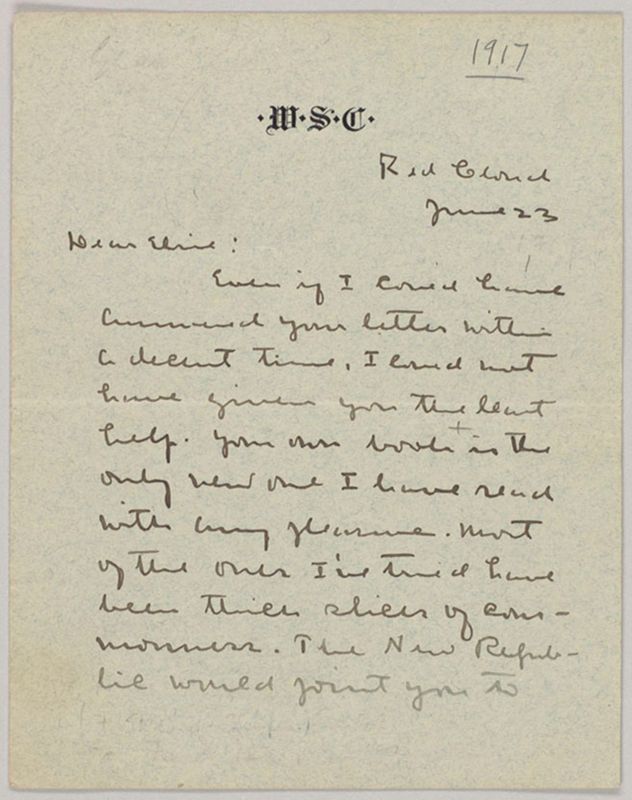 1917
·W·S·C·
Red Cloud
June 23
Dear Elsie:
Even if I could have
answered your letter within
a decent time, I could not
have given you the least
help. Your own book + is the
only new one I have read
with any pleasure. Most
of the ones I've tried have
been thick slices of com-
monness. The New Repub-
lic would point you to